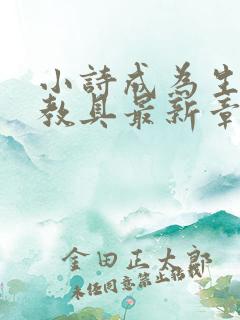 小詩成為生
教具最新章
金田正太郎
未經同意禁止轉載